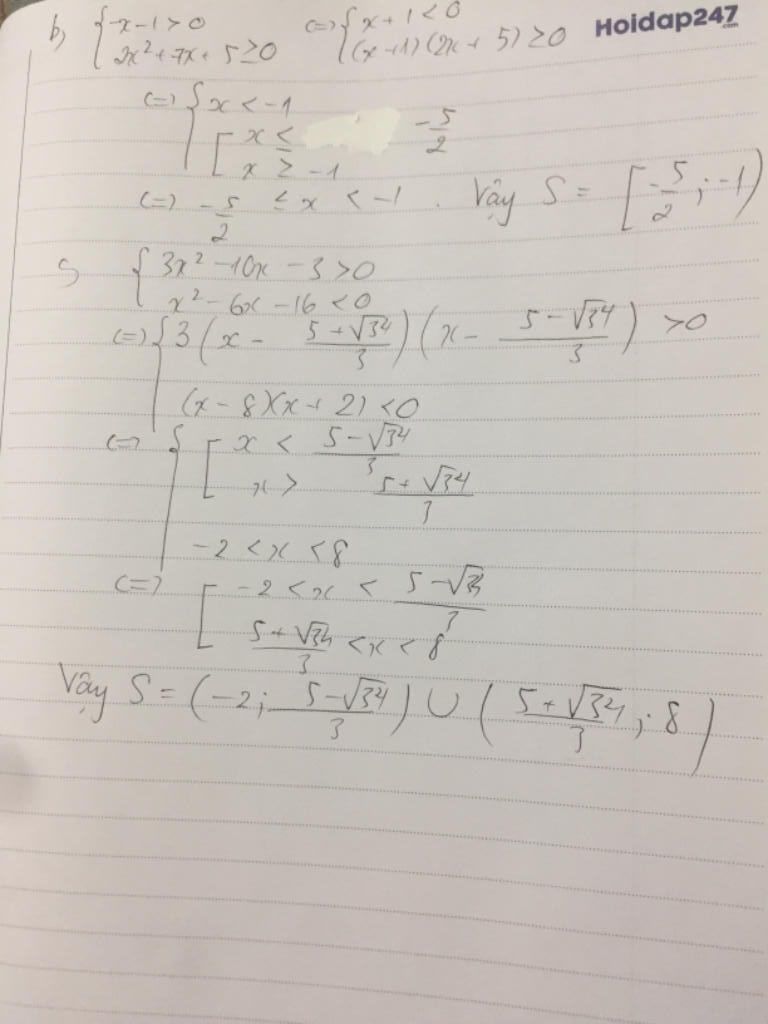 Hoidap247
.com
b, { -x - 1 > 0 (=) { x + 1 < 0
{ 2x² + 7x + 5 ≥ 0 { (x + 1)(2x + 5) ≥ 0
(=) { x < -1
[ x ≤ -5/2
[ x ≥ -1
(=) -5/2 ≤ x < -1 . Vậy S = [-5/2 ; -1)
{ 3x² - 10x - 3 > 0
{ x² - 6x - 16 < 0
(=) { 3(x - (5 + √34)/3)(x - (5 - √34)/3) > 0
(x - 8)(x + 2) < 0
(=) { [ x < (5 - √34)/3
[ x > (5 + √34)/3
-2 < x < 8
(=) [ -2 < x < (5 - √34)/3
[ (5 + √34)/3 < x < 8
Vậy S = (-2; (5 - √34)/3) ∪ ((5 + √34)/3 ; 8)